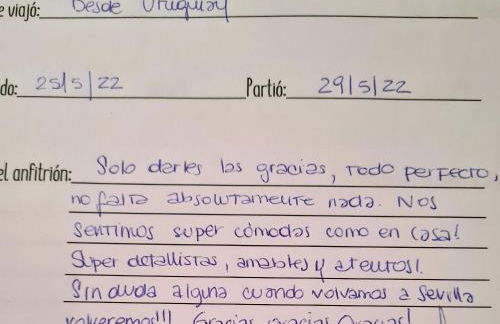 e viajó: Desde Uruguay
do: 25/5/22 Partió: 29/5/22
el anfitrión: Solo darles las gracias, todo perfecto,
no falta absolutamente nada. Nos
sentimos super cómodas como en casa!
Super detallistas, amables y atentos!.
Sin duda alguna cuando volvamos a Sevilla
volveremos!!! Gracias gracias Gracias!